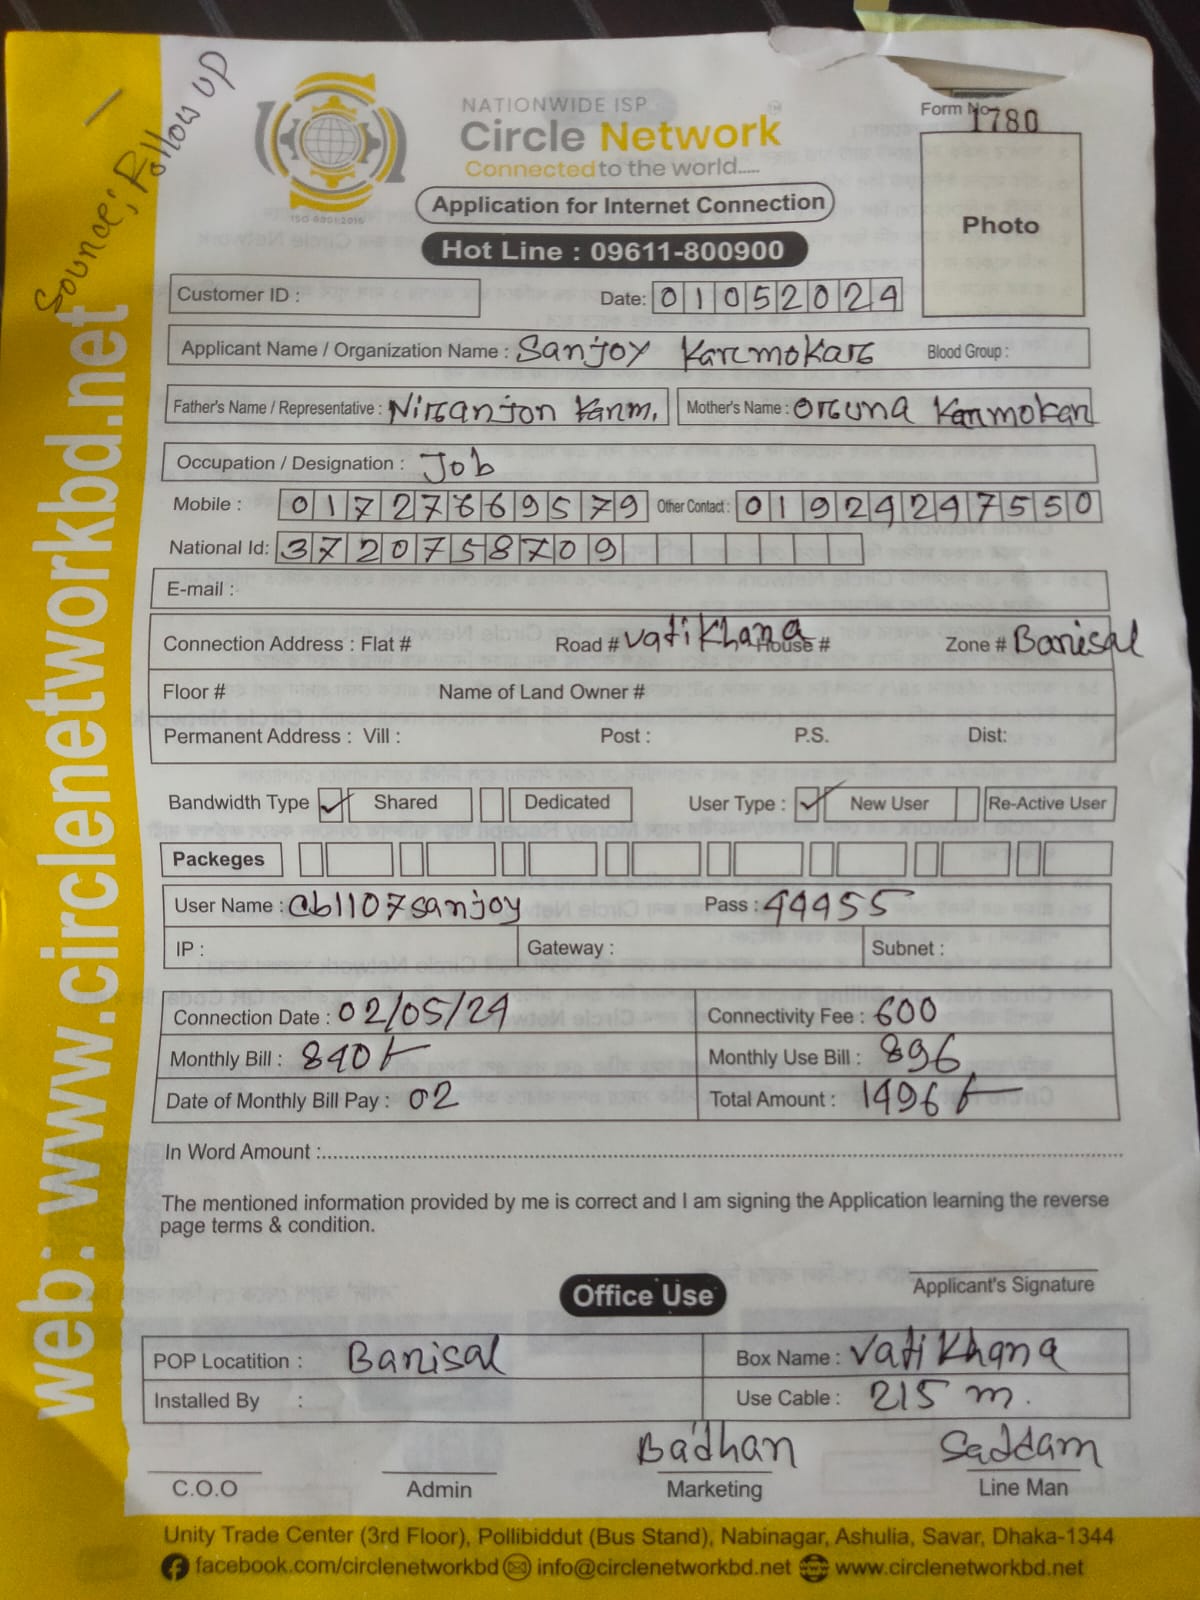 Source; Follow up
NATIONWIDE ISP
Circle Network
Connected to the world.....
ISO 9001:2015
Form No 1780
Photo
Application for Internet Connection
Hot Line : 09611-800900
Customer ID :
Date: 01052024
Applicant Name / Organization Name : Sanjoy Karmokar Blood Group :
Father's Name / Representative : Niranjon Karm. Mother's Name : Oruna Karmokar
Occupation / Designation : Job
Mobile : 01727669579 Other Contact : 01924247550
National Id: 3720758709
E-mail :
Connection Address : Flat # Road # Vatikhana House # Zone # Barisal
Floor # Name of Land Owner #
Permanent Address : Vill : Post : P.S. Dist:
Bandwidth Type ✓ Shared Dedicated User Type : ✓ New User Re-Active User
Packeges
User Name : cb1107sanjoy Pass : 44455
IP : Gateway : Subnet :
Connection Date : 02/05/24 Connectivity Fee : 600
Monthly Bill : 840/- Monthly Use Bill : 896
Date of Monthly Bill Pay : 02 Total Amount : 1496/-
In Word Amount :
The mentioned information provided by me is correct and I am signing the Application learning the reverse
page terms & condition.
Applicant's Signature
Office Use
POP Locatition : Barisal Box Name : Vatikhana
Installed By : Use Cable : 215 m.
Badhan Saddam
C.O.O Admin Marketing Line Man
Unity Trade Center (3rd Floor), Pollibiddut (Bus Stand), Nabinagar, Ashulia, Savar, Dhaka-1344
facebook.com/circlenetworkbd info@circlenetworkbd.net www.circlenetworkbd.net
web: www.circlenetworkbd.net